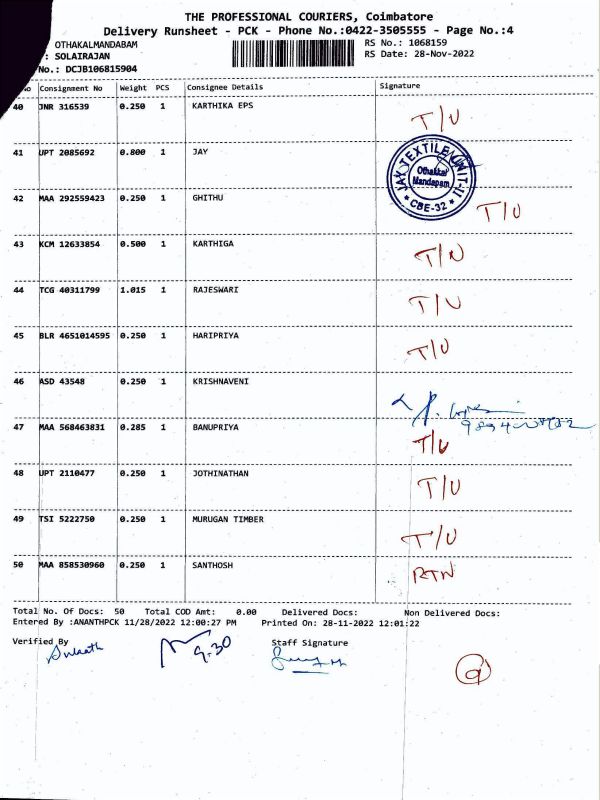 THE PROFESSIONAL COURIERS, Coimbatore
Delivery Runsheet - PCK - Phone No.:0422-3505555 - Page No.:4
OTHAKALMANDABAM
RS No.: 1068159
: SOLAIRAJAN
RS Date: 28-Nov-2022
No.: DCJB106815904
No Consignment No Weight PCS Consignee Details Signature
40 JNR 316539 0.250 1 KARTHIKA EPS T/U
41 UPT 2085692 0.800 1 JAY
JAY TEXTILE UNIT-II
Othakkal
Mandapam
* CBE-32 *
42 MAA 292559423 0.250 1 GHITHU T/U
43 KCM 12633854 0.500 1 KARTHIGA T/U
44 TCG 40311799 1.015 1 RAJESWARI T/U
45 BLR 4651014595 0.250 1 HARIPRIYA T/U
46 ASD 43548 0.250 1 KRISHNAVENI
47 MAA 568463831 0.285 1 BANUPRIYA T/U
48 UPT 2110477 0.250 1 JOTHINATHAN T/U
49 TSI 5222750 0.250 1 MURUGAN TIMBER T/U
50 MAA 858530960 0.250 1 SANTHOSH RTN
Total No. Of Docs: 50 Total COD Amt: 0.00 Delivered Docs: Non Delivered Docs:
Entered By :ANANTHPCK 11/28/2022 12:00:27 PM Printed On: 28-11-2022 12:01:22
Verified By Staff Signature
9.30